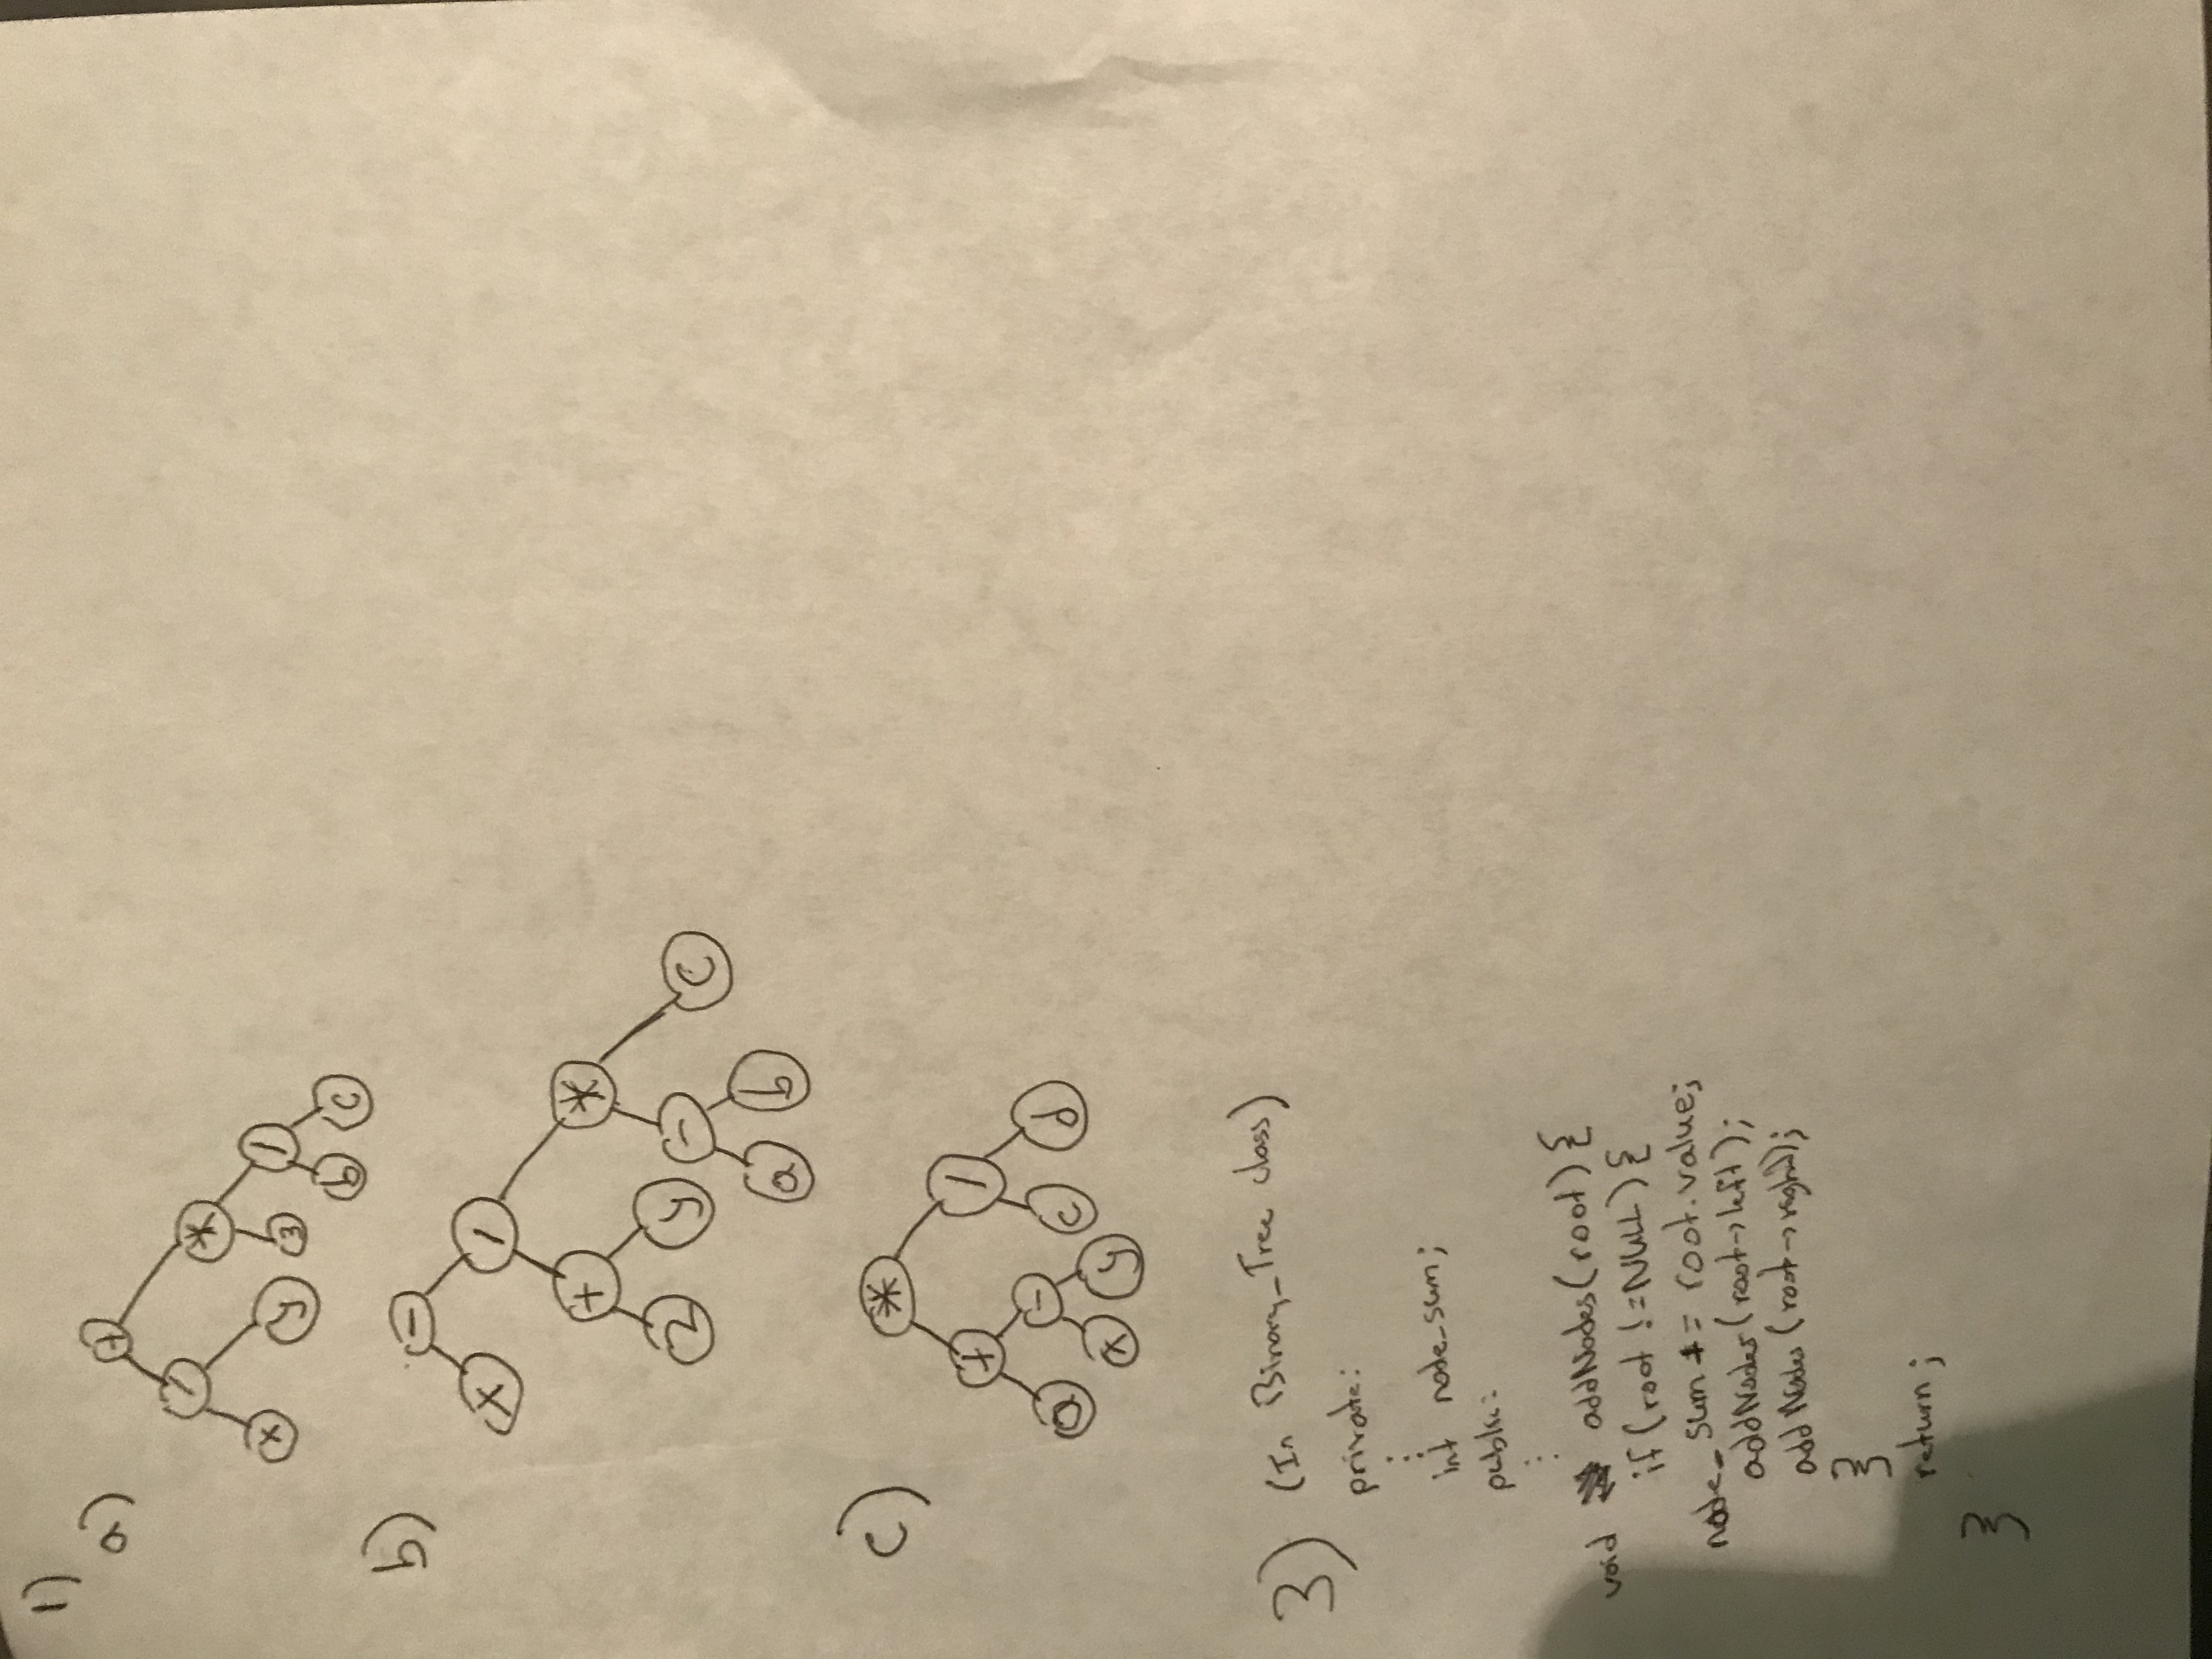 1)
a)
+
/ *
x y 3 /
b c
b)
-
x /
+ *
2 y - c
a b
c)
*
+ /
a - c d
x y
3) (In Binary_Tree class)
private:
int node_sum;
public:
void addNodes(root) {
if (root != NULL) {
node_sum += root.value;
addNodes(root->left);
addNodes(root->right);
}
return;
}